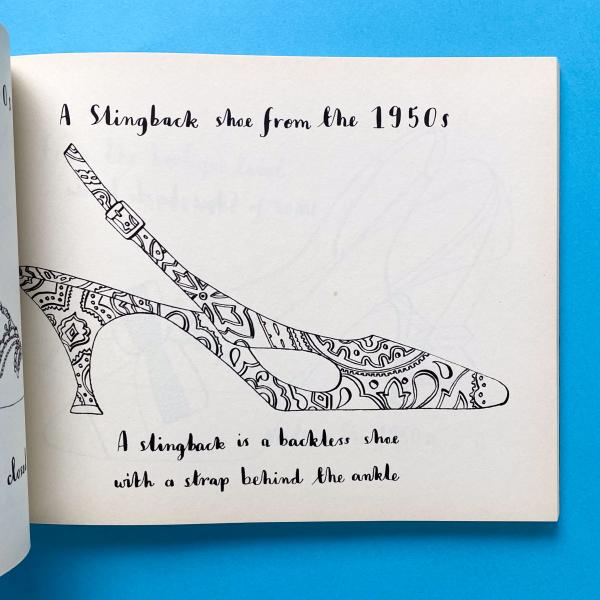 A Slingback shoe from the 1950s
A slingback is a backless shoe
with a strap behind the ankle